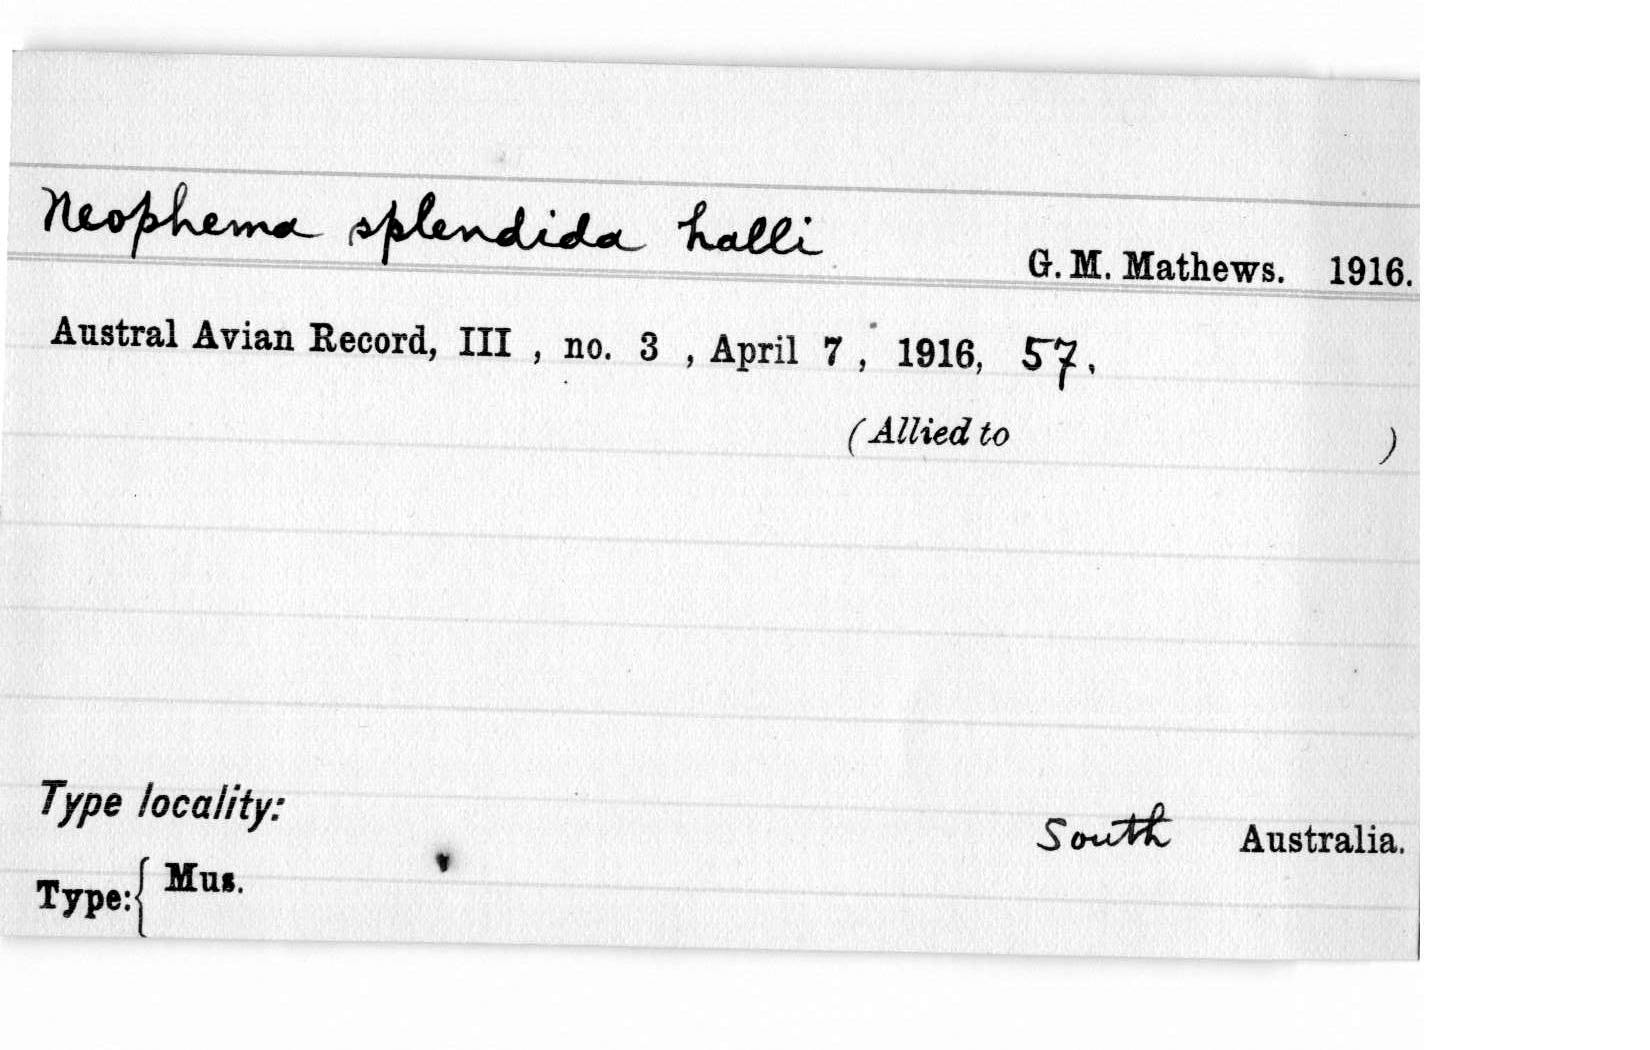 Neophema splendida halli
G. M. Mathews. 1916.
Austral Avian Record, III , no. 3 , April 7 , 1916, 57.
(Allied to )
Type locality:
South Australia.
Type:{ Mus.